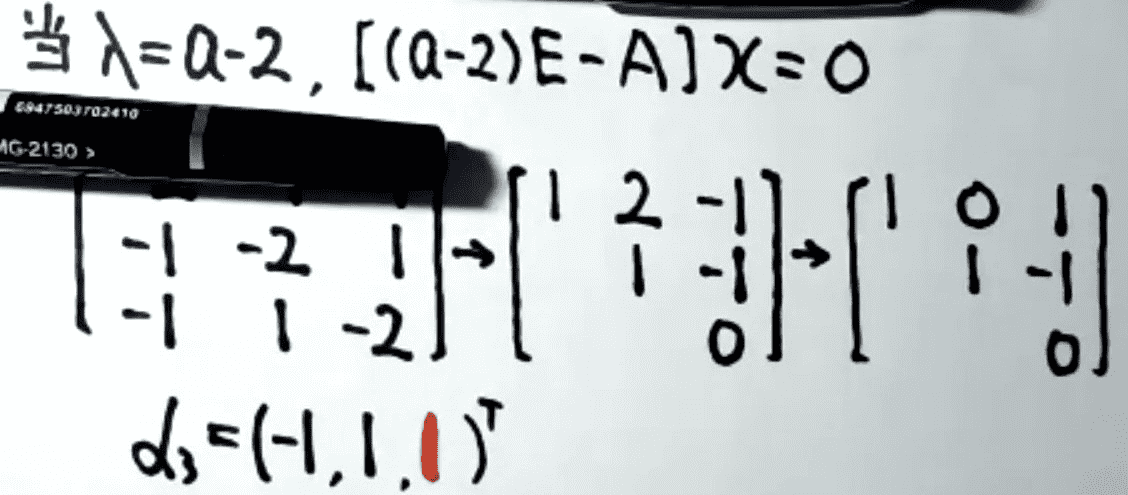 当 λ=a-2, [(a-2)E-A]X=0
6947503702410
MG-2130 >
[ -1 -2 1 ] → [ 1 2 -1 ] → [ 1 0 1 ]
-1 1 -2   1 -1   1 -1
0   0
α₃=(-1,1,1)ᵀ